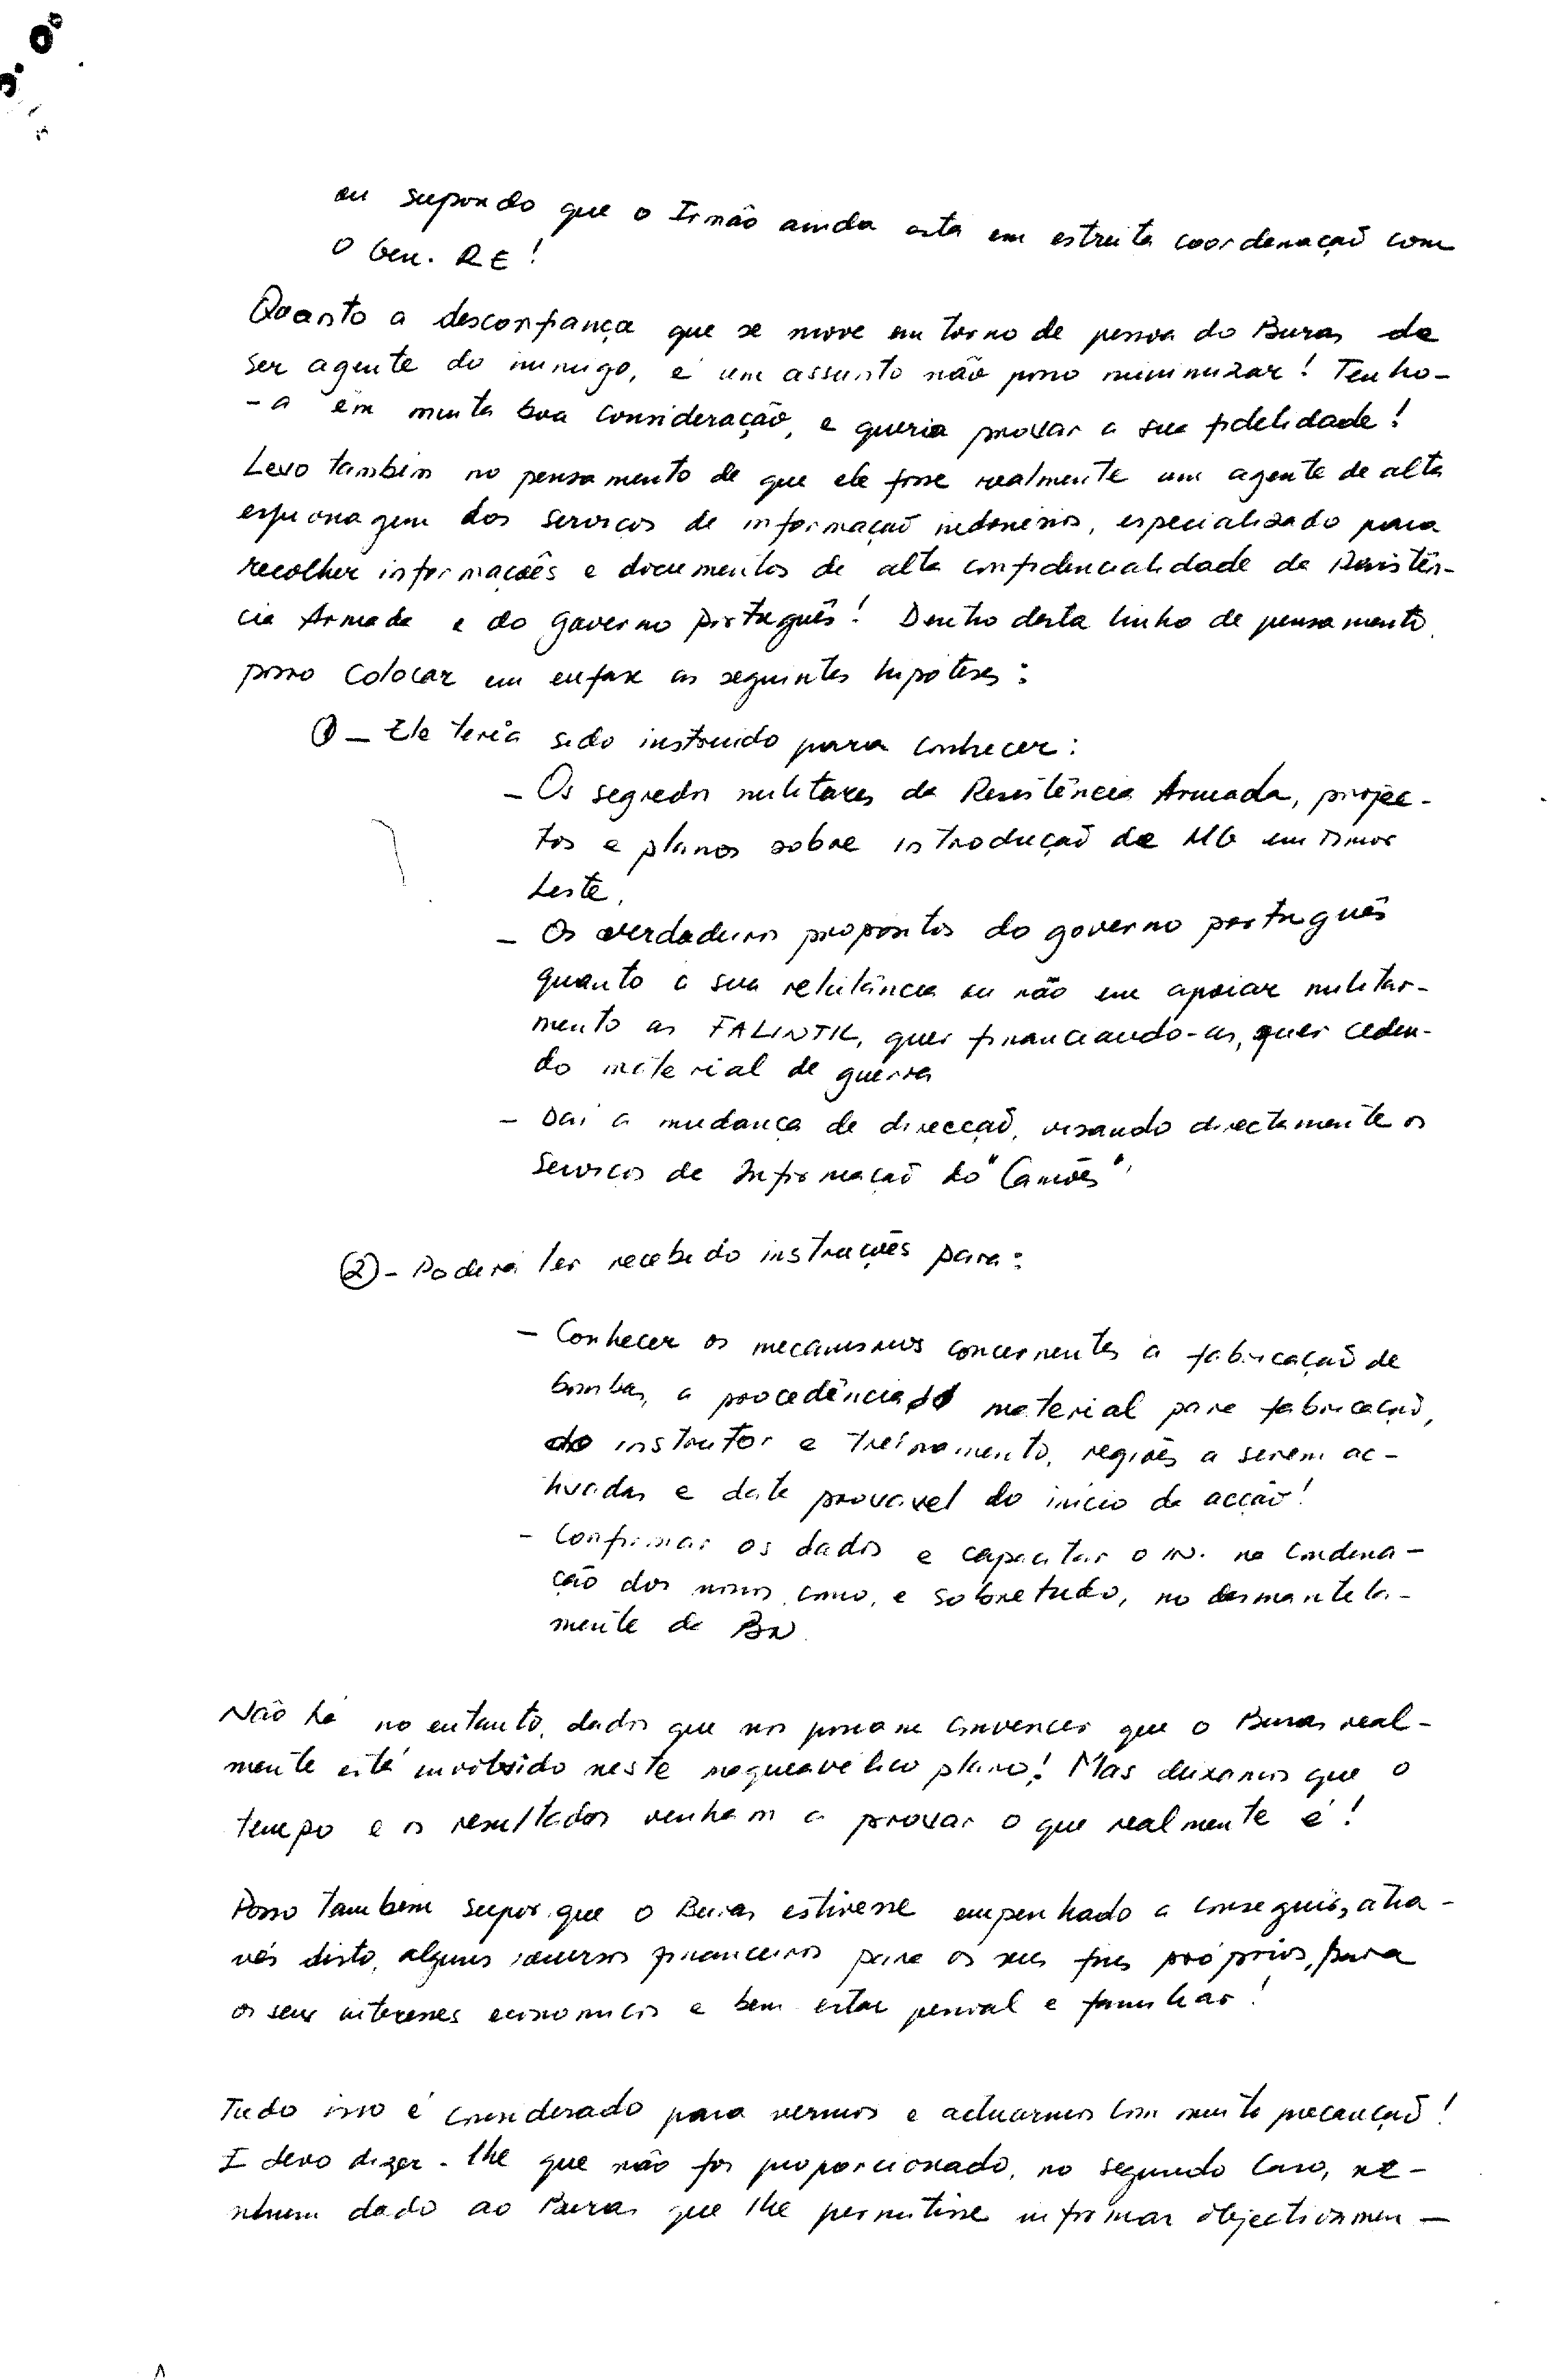 ou supondo que o Irmão ainda esta em estreita coordenação com
o Gen. RE!
Quanto a desconfiança que se move em torno de pessoa do Buras de
ser agente do inimigo, é um assunto não posso minimizar! Tenho-
-a em muita boa consideração, e queria provar a sua fidelidade!
Levo também no pensamento de que ele fosse realmente um agente de alta
espionagem dos serviços de informação indonésios, especializado para
recolher informações e documentos de alta confidencialidade da Resistên-
cia Armada e do governo português! Dentro desta linha de pensamento,
posso colocar em enfase as seguintes hipoteses:
① - Ele teria sido instruido para conhecer:
- Os segredos militares da Resistência Armada, projec-
tos e planos sobre introdução de MG em Timor
Leste.
- Os verdadeiros propositos do governo português
quanto a sua relutância ou não em apoiar militar-
mento as FALINTIL, quer financiando-as, quer ceden-
do material de guerra
- Dai a mudança de direcção, visando directamente os
Serviços de Informação do "Camões"
② - Poderá ter recebido instruções para:
- Conhecer os mecanismos concernentes a fabricação de
bombas, a procedência do material para fabricação,
do instrutor e treinamento, regiões a serem ac-
tivadas e data provavel do inicio da acção!
- Confirmar os dados e capacitar o IN. na condena-
ção dos nossos, como, e sobretudo, no desmantela-
mente da BN.
Não há no entanto, dados que nos possam convencer que o Buras real-
mente está envolvido neste maqueavélico plano! Mas deixamos que o
tempo e os resultados venham a provar o que realmente é!
Posso tambem supor que o Buras estivesse empenhado a conseguir, atra-
vés disto, alguns recursos financeiros para os seus fins próprios, para
os seus interesses economicos e bem estar pessoal e familiar!
Tudo isso é considerado para vermos e actuarmos com muita precaução!
E devo dizer-lhe que não foi proporcionado, no segundo caso, ne-
nhum dado ao Buras que lhe permitisse informar objectivamen-